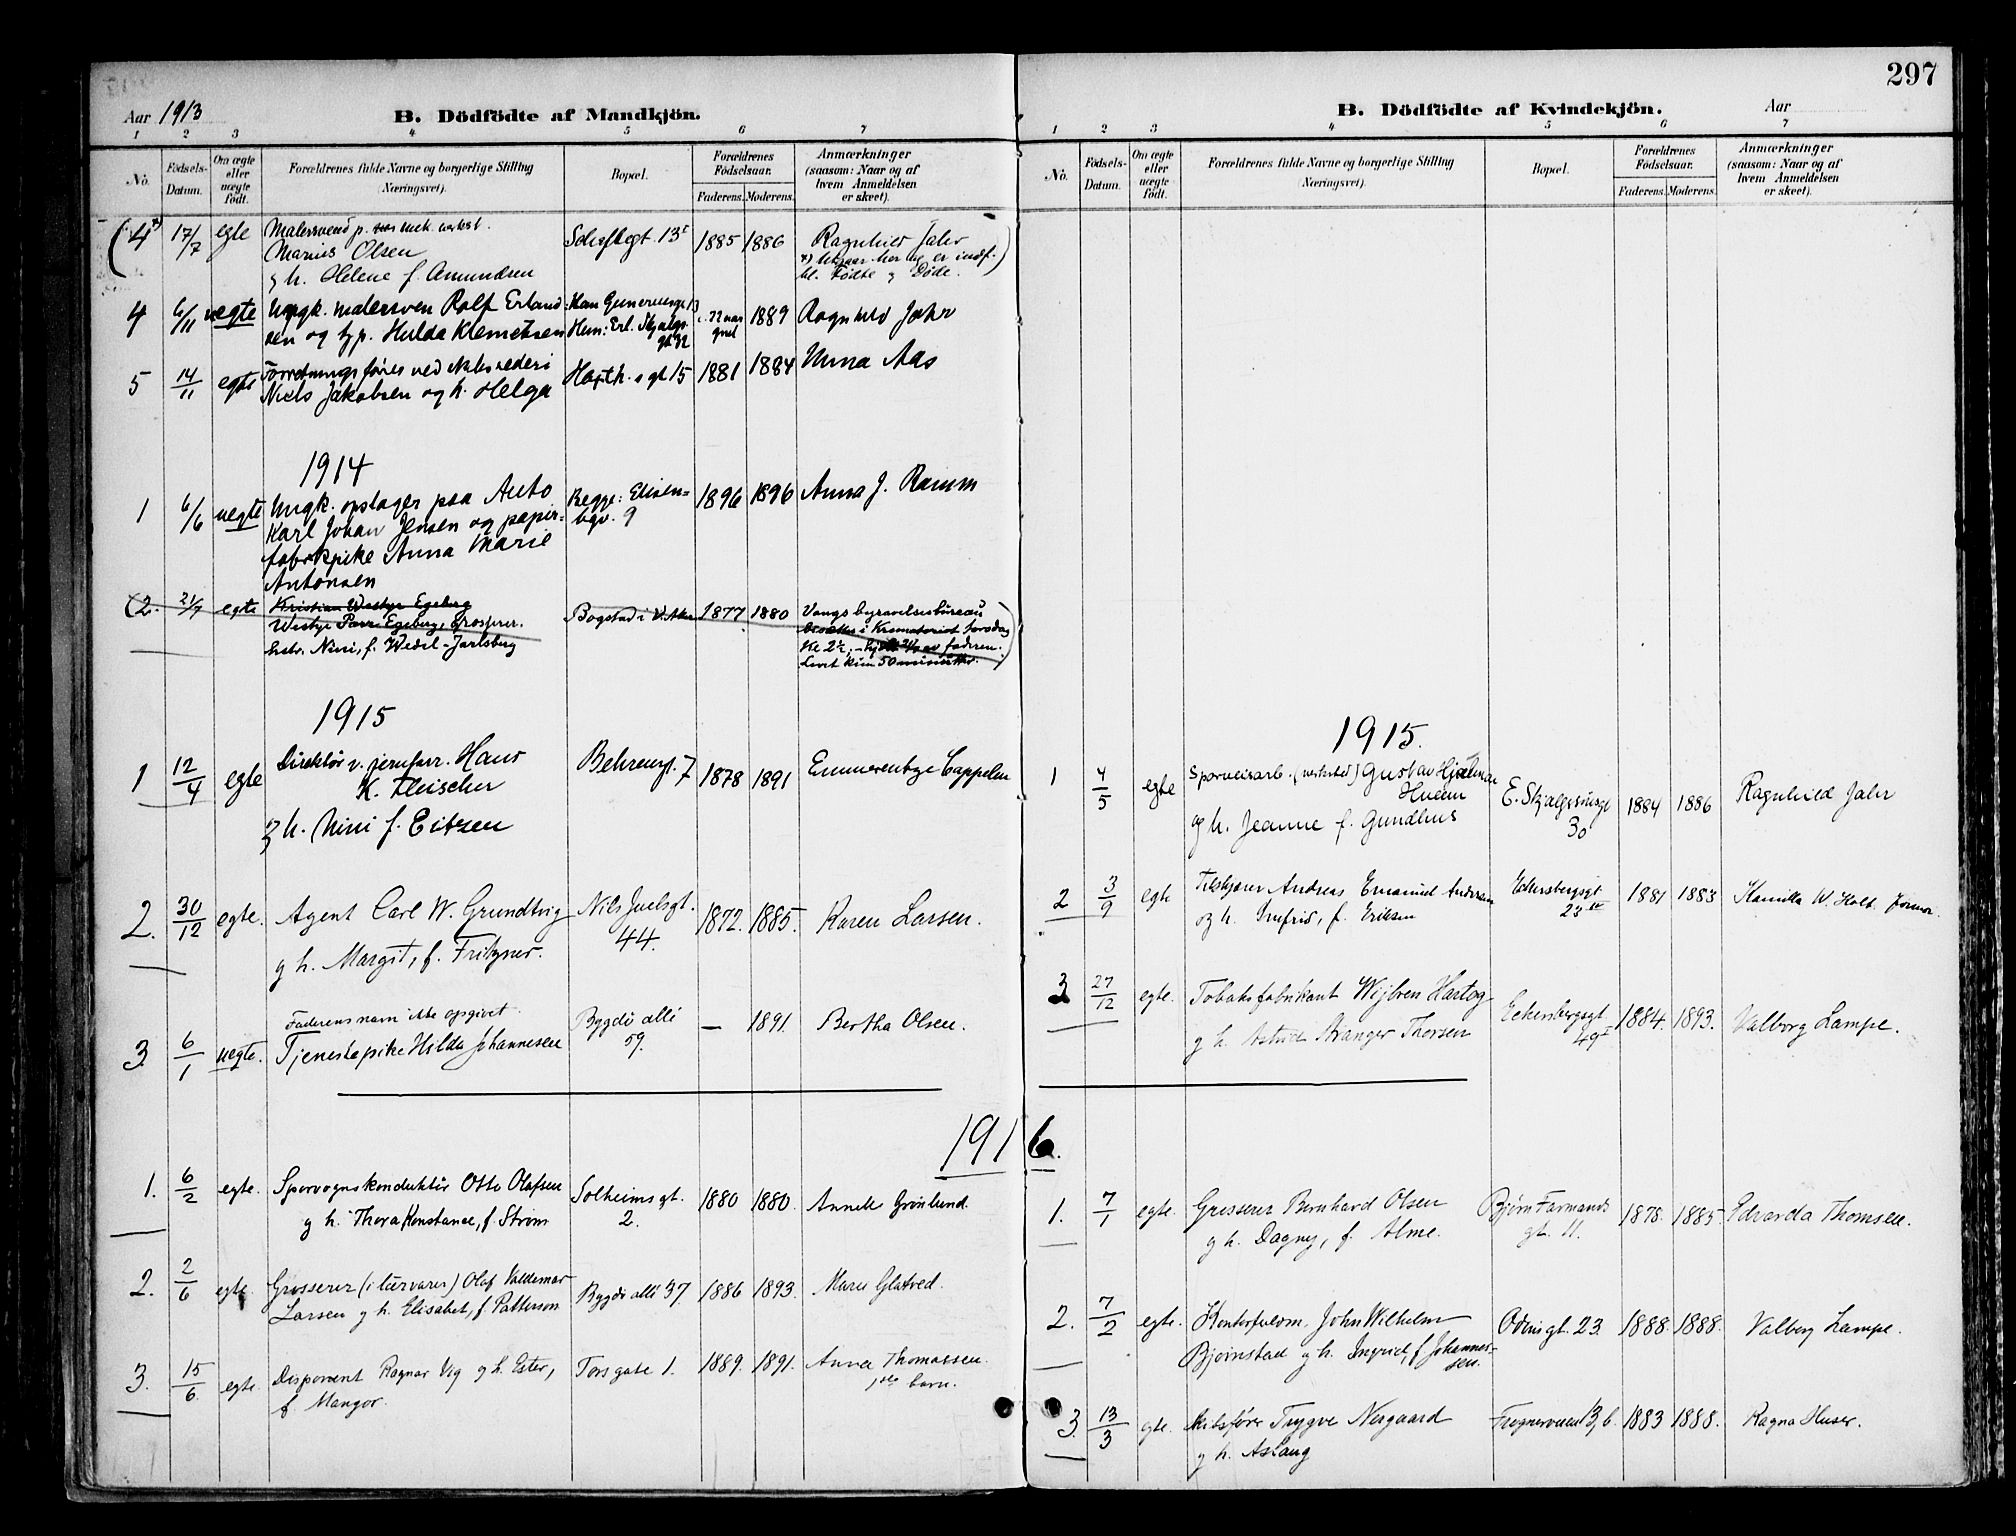 297
Aar 1913
B. Dödfödte af Mandkjön.
1 2 3 4 5 6 7
No.
Födsels-
Datum.
Om ægte
eller
uægte
födt.
Forældrenes fulde Navne og borgerlige Stilling
(Næringsvei).
Bopæl.
Forældrenes
Födselsaar.
Faderens. Moderens.
Anmærkninger
(saasom: Naar og af
hvem Anmeldelsen
er skeet).
(4 17/7 egte Malersvend p. mek. verkst.
Marius Olsen
g h. Helene f. Amundsen
13 1885 1886 Ragnhild Jahr
her
bl. Fødte g Døde.)
4 6/11 uegte Ungk. malersven Rolf Erland-
sen og Hulda Klemetsen
1889 Ragnhild Jahr
5 14/11 egte Forretningsfører ved
Niels Jakobsen og h. Helga
15 1881 1884 Unna Aas
1914
1 6/6 uegte Ungk. opslager paa Auto
Karl Johan Jensen og papir-
fabrikpike Anna Marie
Antonsen
Begge: Elisen-
bgv. 9
1896 1896 Anna J. Ramm
(2. 21/7 egte Kristian Westye Egeberg
Westye Egeberg, grosserer.
hstr. Nini, f. Wedel-Jarlsberg
Bogstad i V. Aker 1877 1880
Vangs byravelsesbureau
i Krematoriet torsdag
Kl 2½, av fadren.
Levet kun 50 minutter.)
1915
1 12/4 egte Direktør v. Hans
K. Fleischer
g h. Nini f. Eitzen
Behrensgt. 7 1878 1891 Emmerentze Cappelen
2. 30/12 egte. Agent Carl W. Grundtvig
g h. Margit, f. Fritzner.
Nils Juelsgt.
44.
1872. 1885. Karen Larsen.
3. 6/1 uegte. Faderens navn ikke opgivet.
Tjenestepike Hilda Johannesen
Bygdø allé
59.
— 1891. Bertha Olsen.
1916.
1. 6/2 egte. Sporvognskonduktør Otto Olafsen
g h. Thora Konstance, f. Strøm
Solheimsgt.
2.
1880 1880. Annette Grønlund.
2. 2/6 egte. Grosserer (i tørvarer) Olaf Valdemar
Larsen g h. Elisabet, f. Patterson
Bygdø allé 37. 1886 1893. Marie Glatved.
3. 15/6 egte. Disponent Ragnar Vig g h. Ester,
f. Mangor.
Torsgate 1. 1889. 1891. Anna Thomassen.
1ste barn.
B. Dödfödte af Kvindekjön.
Aar
1 2 3 4 5 6 7
No.
Födsels-
Datum.
Om ægte
eller
uægte
födt.
Forældrenes fulde Navne og borgerlige Stilling
(Næringsvei).
Bopæl.
Forældrenes
Födselsaar.
Faderens. Moderens.
Anmærkninger
(saasom: Naar og af
hvem Anmeldelsen
er skeet).
1915.
1 4/5 egte Sporveisarb. (verksted) Gustav Hjalmar
og h. Jeanne f. Gundhus
E. Skjalgssønsgt
30
1884 1886 Ragnhild Jahr
2 3/9 egte Tilskjærer Andreas Emanuel Andersen
og h. f. Eriksen
Eckersbergsgt
23 IV
1881 1883 Kamilla W. Holt
3 27/12 egte. Tobaksfabrikant Wijbren Hartog
g h. Astrid Stranger Thorsen
Eckersbergsgt.
49 I
1884. 1893. Valborg Lampe.
1. 7/1 egte. Grosserer Bernhard Olsen
g h. Dagny, f. Alme.
Bjørn Farmands
gt. 11.
1878. 1885. Edvarda Thomsen.
2. 7/2 egte. Kontorfuldm. John Wilhelm
Bjørnstad g h. Ingrid, f. Johannes-
sen.
Odinsgt. 23. 1888. 1888. Valborg Lampe.
3. 13/3 egte. Skibsfører Trygve Nergaard
g h. Aslaug
Frognerveien 13, b. 1883 1888. Ragna Huser.